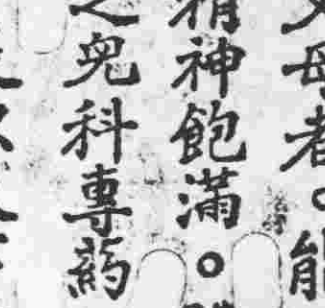 父母者。能
精神飽滿。
之兒科專药